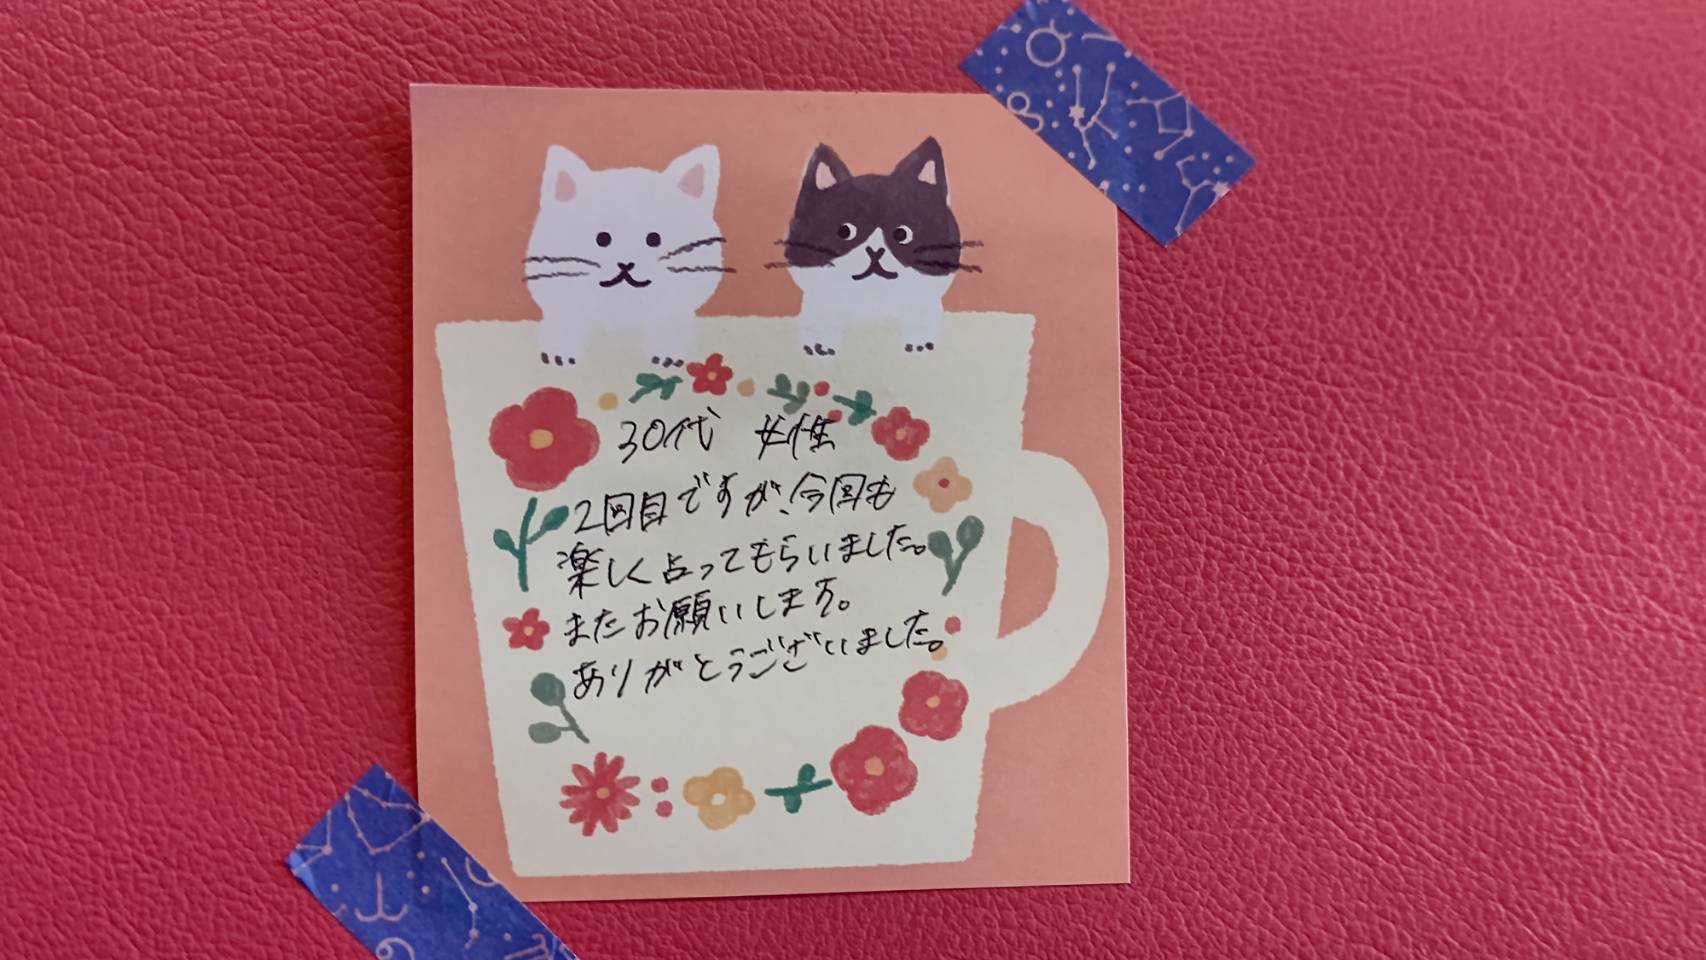 30代 女性
2回目ですが、今回も
楽しく占ってもらいました。
またお願いします。
ありがとうございました。